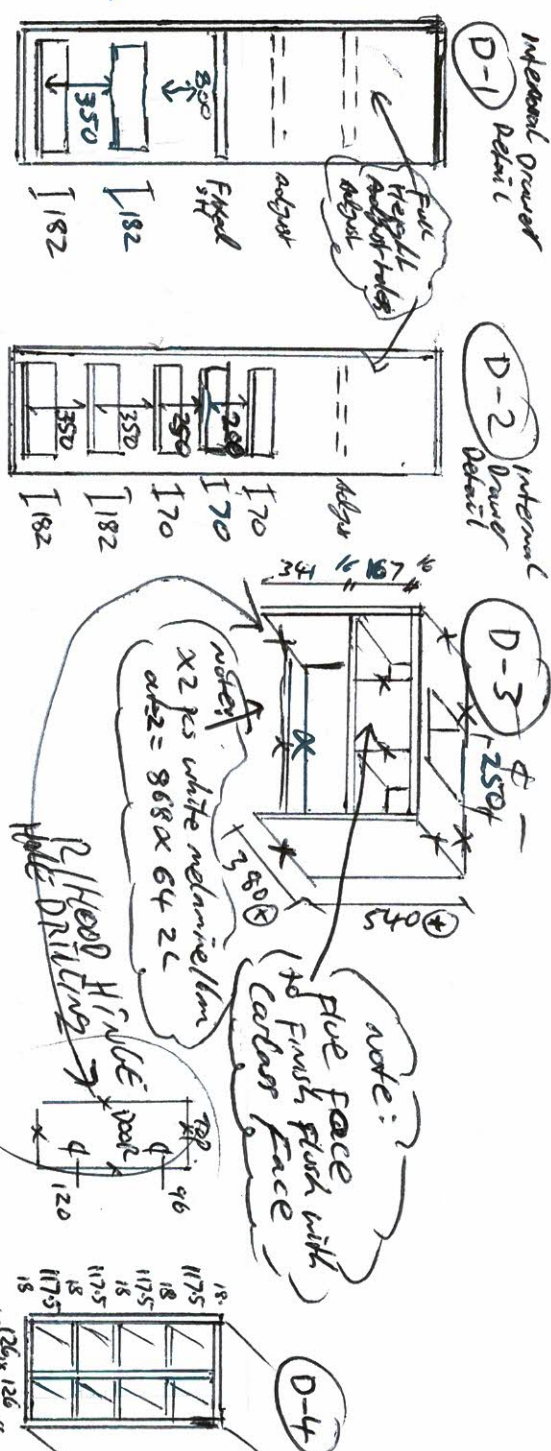 Internal Drawer
Detail
D-1
300
350
Full
Height
Adjust holes
Adjust
Adjust
Adjust
Fixed
S/F
[182
[182
D-2
Internal
Drawer
Detail
Adjust
200
250
350
350
I 70
I 70
I 70
[182
[182
D-3
¢
250
540 *
380 *
note:
x2 pcs white melamine
868 x 64 2L
note:
Flue Face
to Finish flush with
Carcass Face
R/HOOD HINGE
HOLE DRILLING
TOP
DOOR
¢
¢
96
120
D-4
18
117.5
18
117.5
18
117.5
18
117.5
18
126
126